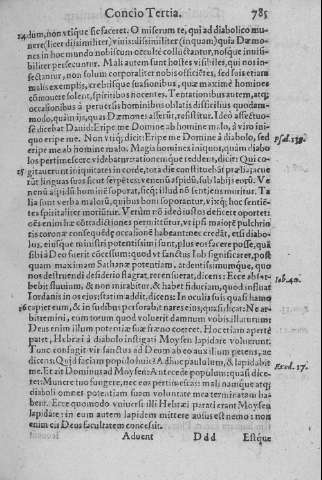 Concio Tertia. 785
24 dum, non vtique sic faceret. O miserum te, qui ad diabolico mu-
nere (licet dissimiliter) vinis: dissimiliter (inquam) quia Dæmo-
nes in hoc mundo nobiscum occultè colluctantur, nosque inuisi-
biliter persecuntur. Mali autem sunt hostes visibiles, qui nos in-
sectantur, non solum corporaliter nobis officientes, sed suis etiam
malis exemplis, crebrisque suasionibus, quæ maximè homines
cōmouere solent, spirituales nocentes. Tentationibus autem, atq;
occasionibus à peruersis hominibus oblatis difficilius quodam-
modo, quàm ijs, quas Dæmones afferūt, resistitur. Ideo
se dicebat Dauid: Eripe me Domine ab homine malo, à viro ini-
quo eripe me. Non vtiq; dicit: Eripe me Domine à diabolo, sed
eripe me ab homine malo. Magis homines iniquos, quàm diabo
los pertimescere videbatur: rationemque reddens, dicit: Qui co-
25 gitauerunt iniquitates in corde, tota die constituebāt prælia: acue
rūt linguas suas sicut serpētes: venenū aspidū, sub labijs eorū. Ve
nenū aspidis hominē soporat, sicq; illud nō sentiens moritur. Ta
lia sunt verba malorū, quibus boni soporantur, vixq; hoc sentiē-
tes spiritaliter moriūtur. Verùm
cōtradictiones permittūtur, vt ipsis maiore pulchrio
ris coronæ consequēdæ occasione habeant: nec credāt, etsi diabo-
lus, eiusque ministri potentissimi sunt, plus eos facere posse, quā
sibi à Deo fuerit cōcessum: quod vt sanctus Iob significaret, post
quam maximam Sathanæ potentiam, ardentissimumque, quo
nos destruendi desiderio flagrat, recensuerat, dicens: Ecce absor-
bebit fluuium, & non mirabitur, & habet fiduciam, quod influat
Iordanis in os eius, statim addit, dicens: In oculis suis quasi hamo
26 capiet eum, & in sudibus perforabit nares eius, quasi dicat: Ne ar-
bitremini, eum totum quod voluerit damnum vobis illaturum:
Deus enim illum potentiæ suæ fræno coercet. Hoc etiam apertè
patet, Hebræi à diabolo instigati Moysen lapidare voluerunt.
Tunc confugit vir sanctus ad Deum ab eo auxilium petens, ac
dicens: Quid faciam populo huic? Adhuc paululum, & lapidabit
me. Et ait Dominus ad Moysen: Antecede populum: quasi dice-
ret: Munere tuo fungere, nec eos pertimescas: mali namque atq;
diaboli omnes potentiam suam voluntate mea terminatam ha-
bent. Ecce quomodo vniuersi illi Hebræi parati erant Moysen
lapidare: in eum autem lapidem mittere ausus est nemo: non
enim eis Deus facultatem concessit.
Psal. 139.
Iob. 40.
Exod. 17.
Aduent Ddd Estque